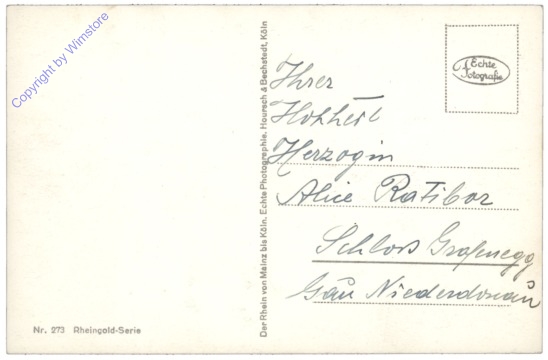 Copyright by Wimstore
Der Rhein von Mainz bis Köln. Echte Photographie. Hoursch & Bechstedt, Köln
Echte
Fotografie
Ihrer
Hoheit
Herzogin
Alice Ratibor
Schloss Grafenegg
Gau Niederdonau
Nr. 273 Rheingold-Serie